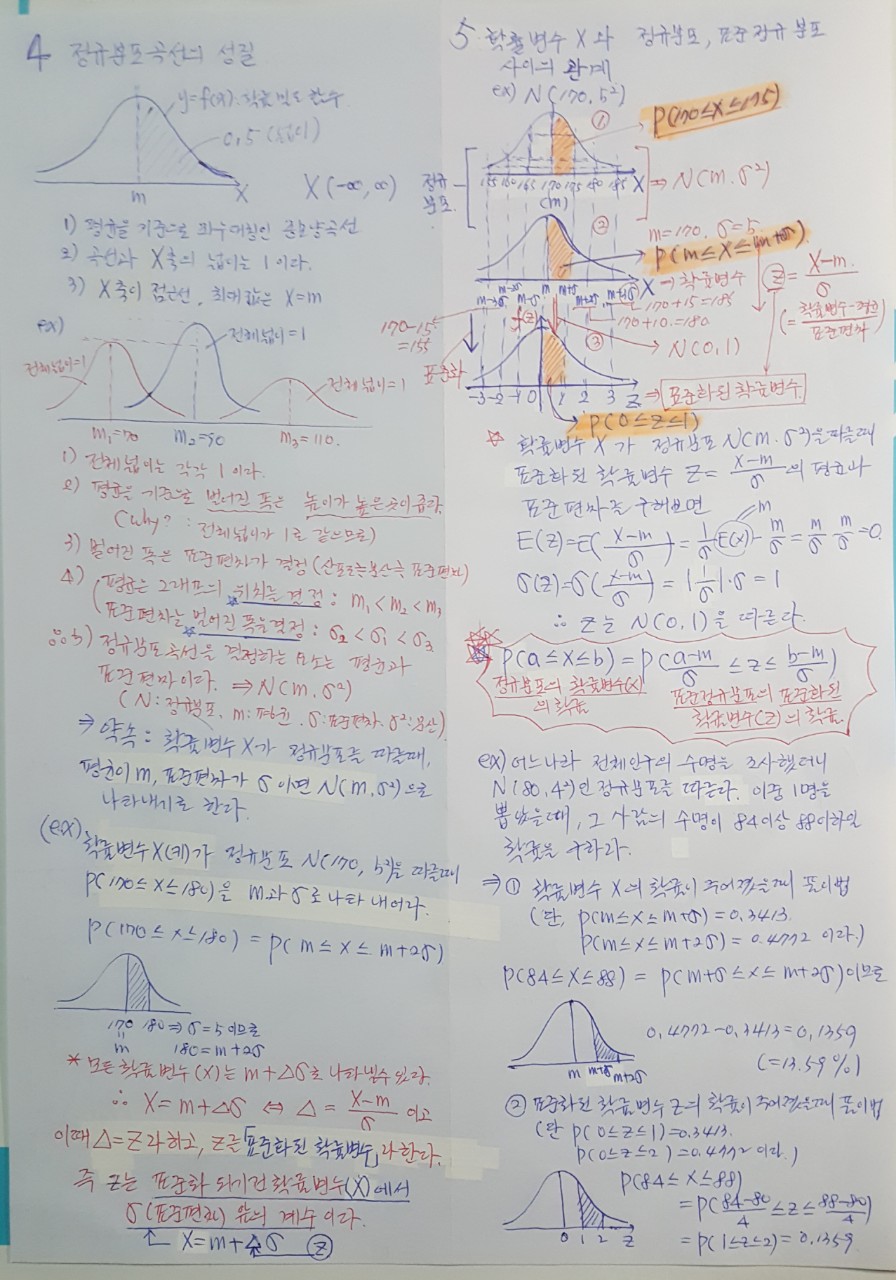 4 정규분포곡선의 성질
y=f(x):확률밀도함수
0.5(넓이)
m X X(-∞,∞)
1) 평균을 기준으로 좌우대칭인 종모양곡선
2) 곡선과 X축의 넓이는 1이다.
3) X축이 점근선, 최댓값은 X=m
ex)
전체넓이=1
전체넓이=1
전체넓이=1
m₁=70 m₂=90 m₃=110.
1) 전체넓이는 각각 1이다.
2) 평균을 기준으로 벌어진 폭은 높이가 높은곳이 좁다.
(why? : 전체넓이가 1로 같으므로)
3) 벌어진 폭은 표준편차가 결정 (산포도는분산즉 표준편차)
4) (평균은 그래프의 위치를 결정 : m₁<m₂<m₃
표준편차는 벌어진 폭을결정 : σ₂<σ₁<σ₃
∴ 5) 정규분포곡선을 결정하는 요소는 평균과
표준편차이다. ⇒ N(m.σ²)
(N:정규분포, m:평균. σ:표준편차. σ²:분산)
⇒ 약속 : 확률변수 X가 정규분포를 따를때,
평균이 m, 표준편차가 σ이면 N(m.σ²)으로
나타내기로 한다.
(ex) 확률변수 X(키)가 정규분포 N(170, 5²)을 따를때
P(170≤X≤180)을 m과 σ로 나타내어라.
P(170≤X≤180) = P(m≤X≤m+2σ)
170 180 ⇒ σ=5 이므로
" m 180=m+2σ
* 모든 확률변수(X)는 m+△σ로 나타낼수 있다.
∴ X=m+△σ ⇔ △=X-m/σ 이고
이때 △=Z라하고, Z를 「표준화된 확률변수」라한다.
즉 Z는 표준화 되기전 확률변수(X)에서
σ(표준편차) 앞의 계수이다.
X=m+△σ Ⓩ
5. 확률변수 X와 정규분포, 표준정규분포
사이의 관계
ex) N(170.5²)
① P(170≤X≤175)
정규분포. 155 160 165 170 175 180 185 X ⇒ N(m.σ²)
(m)
② m=170, σ=5
P(m≤X≤m+σ)
m-3σ m-2σ m-σ m m+σ m+2σ m+3σ X → 확률변수
Z=X-m/σ
(=확률변수-평균/표준편차)
170-15=155
170+15=185
170+10=180
f(z)
표준화
③ N(0,1)
-3 -2 -1 0 1 2 3 Z ⇒ 표준화된확률변수.
P(0≤Z≤1)
☆ 확률변수 X가 정규분포 N(m.σ²)을따를때
표준화된 확률변수 Z=X-m/σ의 평균과
표준편차를 구해보면
E(Z)=E(X-m/σ)=1/σE(X)-m/σ=m/σ-m/σ=0
m
σ(Z)=σ(X-m/σ)=|1/σ|·σ=1
∴ Z는 N(0,1)을 따른다.
P(a≤X≤b)=P(a-m/σ≤Z≤b-m/σ)
정규분포의 확률변수(X)의 확률
표준정규분포의 표준화된
확률변수(Z)의 확률
ex) 어느나라 전체인구의 수명을 조사했더니
N(80,4²)인 정규분포를 따른다. 이중 1명을
뽑았을때, 그 사람의 수명이 84이상 88이하일
확률을 구하라.
⇒ ① 확률변수 X의 확률이 주어졌을때 풀이법
(단, P(m≤X≤m+σ)=0.3413.
P(m≤X≤m+2σ)=0.4772 이다.)
P(84≤X≤88) = P(m+σ≤X≤m+2σ)이므로
0.4772-0.3413=0.1359
(=13.59%)
m m+σ m+2σ
② 표준화된 확률변수 Z의 확률이 주어졌을때 풀이법
(단 P(0≤Z≤1)=0.3413.
P(0≤Z≤2)=0.4772 이다.)
P(84≤X≤88)
=P(84-80/4≤Z≤88-80/4)
=P(1≤Z≤2)=0.1359
0 1 2 Z